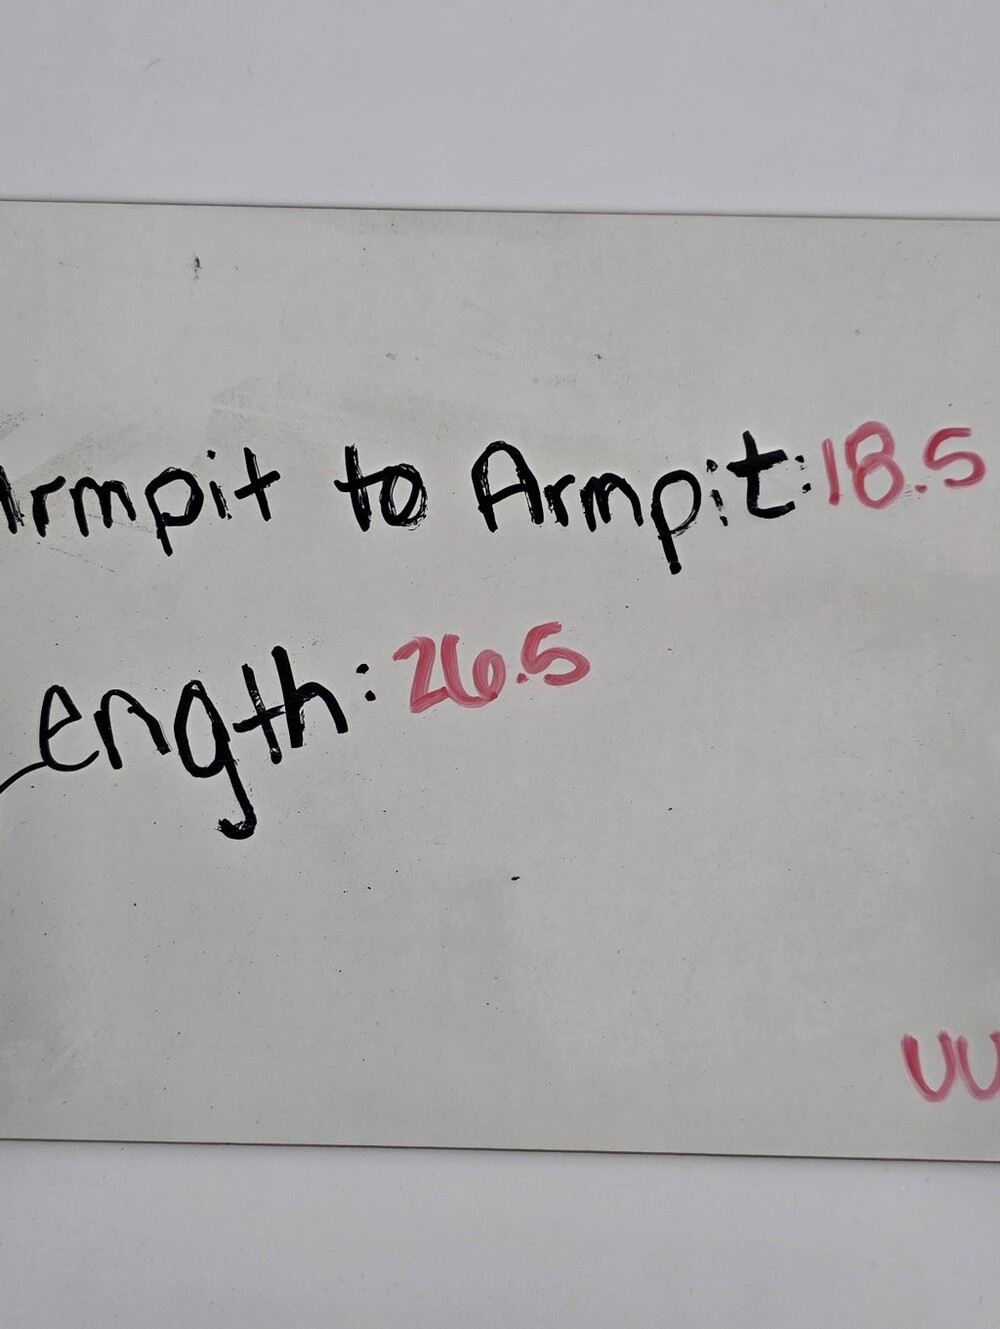 Armpit to Armpit: 18.5
Length: 26.5